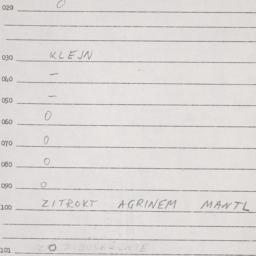 020 0
030 KLEJN
040 –
050 –
060 0
070 0
080 0
090 0
100 ZITROKT AGRINEM MANTL
101